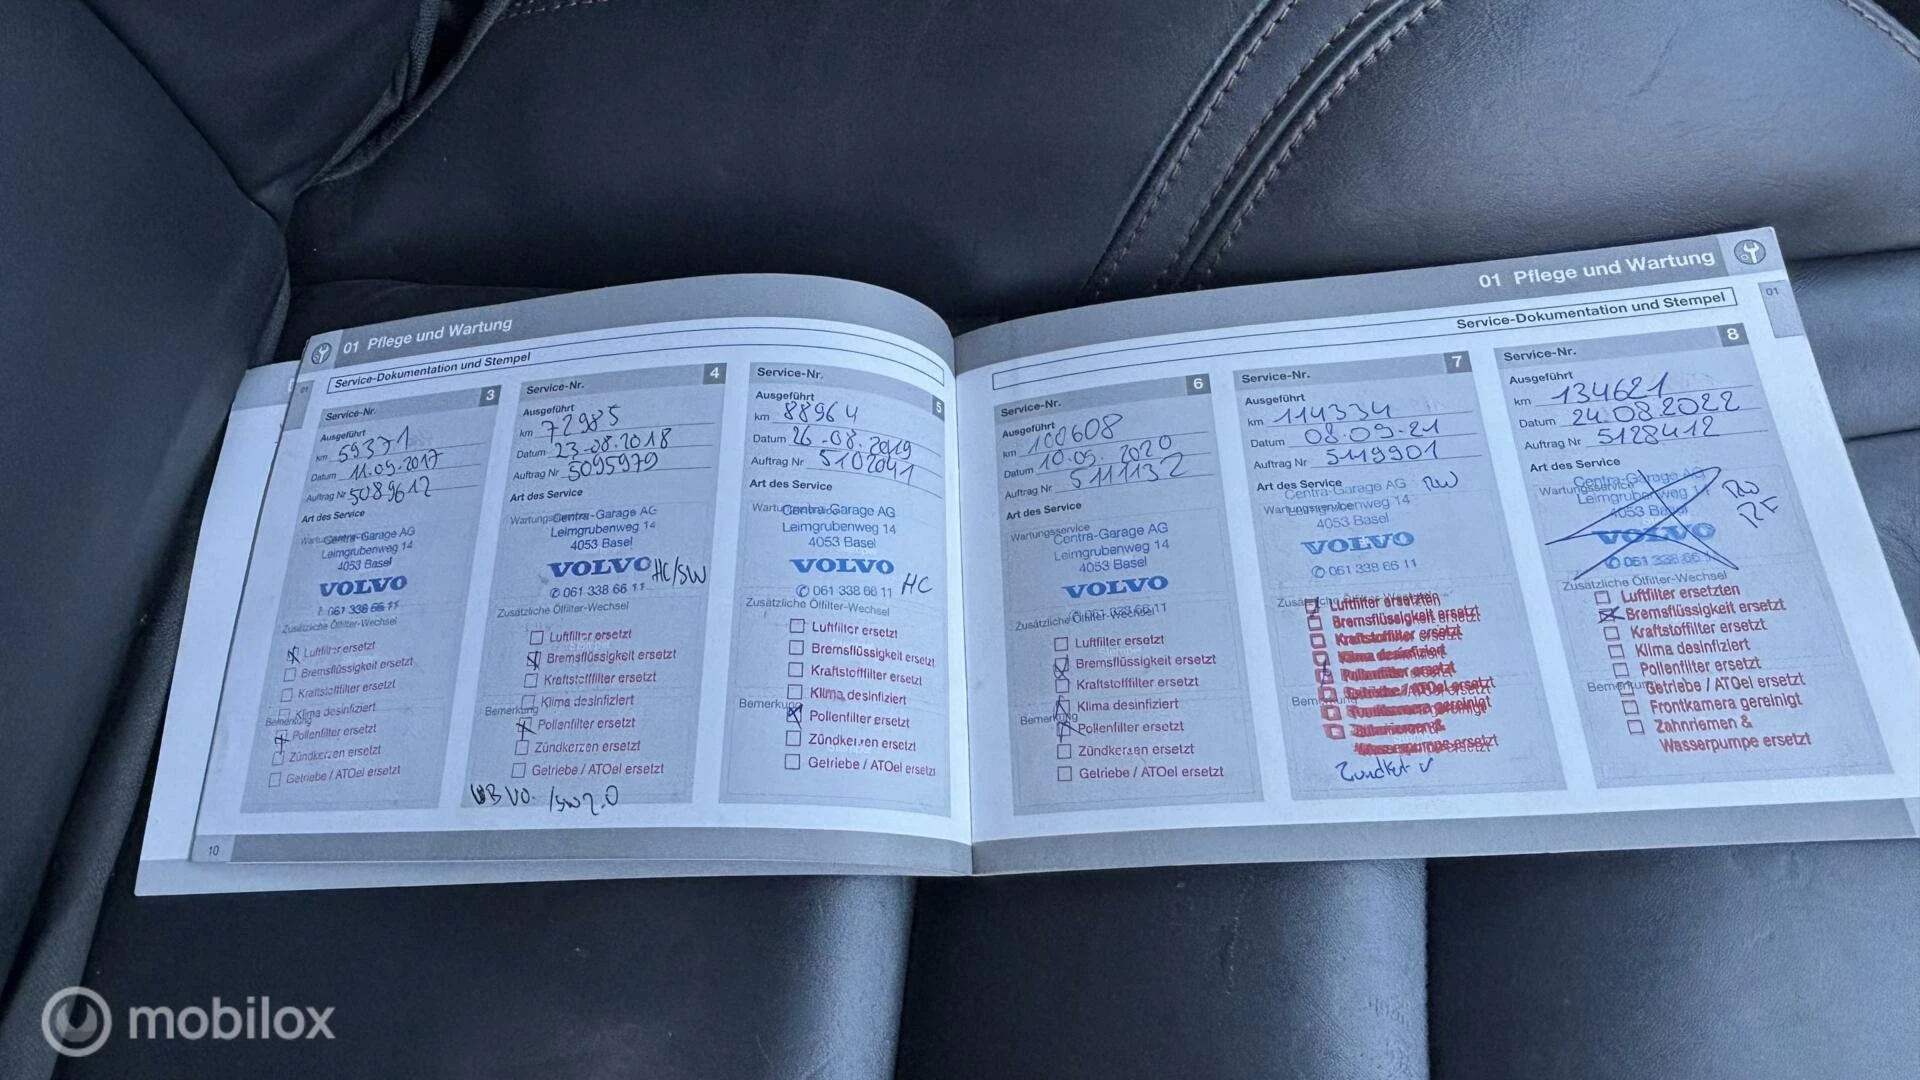 01 Pflege und Wartung
Service-Dokumentation und Stempel
01
Service-Nr. 3
Ausgeführt
km 59371
Datum 11.09.2017
Auftrag Nr 5089612
Art des Service
Wartungsservice
Centra-Garage AG
Leimgrubenweg 14
4053 Basel
VOLVO
✆ 061 338 66 11
Zusätzliche Ölfilter-Wechsel
Luftfilter ersetzt
Bremsflüssigkeit ersetzt
Kraftstoffilter ersetzt
Klima desinfiziert
Bemerkung
Pollenfilter ersetzt
Zündkerzen ersetzt
Getriebe / ATOel ersetzt
Service-Nr. 4
Ausgeführt
km 72985
Datum 23.08.2018
Auftrag Nr 5095979
Art des Service
Wartungsservice
Centra-Garage AG
Leimgrubenweg 14
4053 Basel
VOLVO HC/SW
✆ 061 338 66 11
Zusätzliche Ölfilter-Wechsel
Luftfilter ersetzt
Bremsflüssigkeit ersetzt
Kraftstofffilter ersetzt
Klima desinfiziert
Bemerkung
Pollenfilter ersetzt
Zündkerzen ersetzt
Getriebe / ATOel ersetzt
Service-Nr. 5
Ausgeführt
km 88964
Datum 26.08.2019
Auftrag Nr 5102041
Art des Service
Centra-Garage AG
Leimgrubenweg 14
4053 Basel
VOLVO
✆ 061 338 66 11 HC
Zusätzliche Ölfilter-Wechsel
Luftfilter ersetzt
Bremsflüssigkeit ersetzt
Kraftstoffilter ersetzt
Klima desinfiziert
Bemerkung
Pollenfilter ersetzt
Zündkerzen ersetzt
Getriebe / ATOel ersetzt
10
01 Pflege und Wartung
Service-Dokumentation und Stempel
01
Service-Nr. 6
Ausgeführt
km 100608
Datum 10.09.2020
Auftrag Nr 5111132
Art des Service
Wartungsservice
Centra-Garage AG
Leimgrubenweg 14
4053 Basel
VOLVO
✆ 061 338 66 11
Zusätzliche Ölfilter-Wechsel
Luftfilter ersetzt
Bremsflüssigkeit ersetzt
Kraftstoffilter ersetzt
Klima desinfiziert
Bemerkung
Pollenfilter ersetzt
Zündkerzen ersetzt
Getriebe / ATOel ersetzt
Service-Nr. 7
Ausgeführt
km 114334
Datum 08.09.21
Auftrag Nr 5119901
Art des Service
Centra-Garage AG
Wartungsservice
4053 Basel
VOLVO
✆ 061 338 66 11
Luftfilter ersetzten
Bremsflüssigkeit ersetzt
Kraftstoffilter ersetzt
Klima desinfiziert
Pollenfilter ersetzt
Wasserpumpe ersetzt
Service-Nr. 8
Ausgeführt
km 134621
Datum 24.08.2022
Auftrag Nr 5128412
Art des Service
Centra-Garage AG
Wartungsservice
Leimgrubenweg 14
4053 Basel
VOLVO
✆ 061 338 66 11
Zusätzliche Ölfilter-Wechsel
Luftfilter ersetzten
Bremsflüssigkeit ersetzt
Kraftstoffilter ersetzt
Klima desinfiziert
Pollenfilter ersetzt
Bemerkung
Getriebe / ATOel ersetzt
Frontkamera gereinigt
Zahnriemen &
Wasserpumpe ersetzt
mobilox